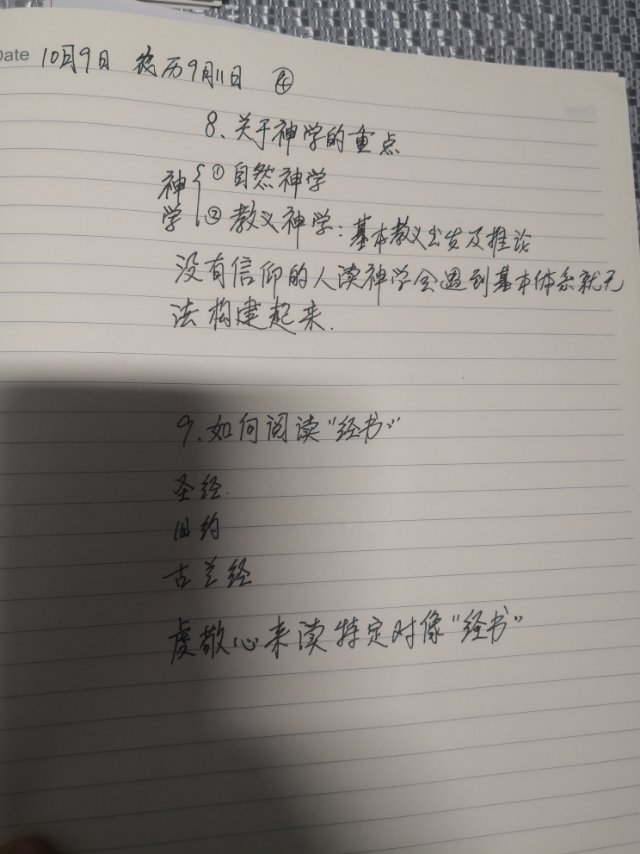 Date 10月9日 农历9月11日 ④
8、关于神学的重点
神学 ① 自然神学
② 教义神学：基本教义出发及推论
没有信仰的人读神学会遇到基本体系就无
法构建起来.
9、如何阅读“经书”
圣经.
旧约
古兰经
虔敬心来读特定对像“经书”